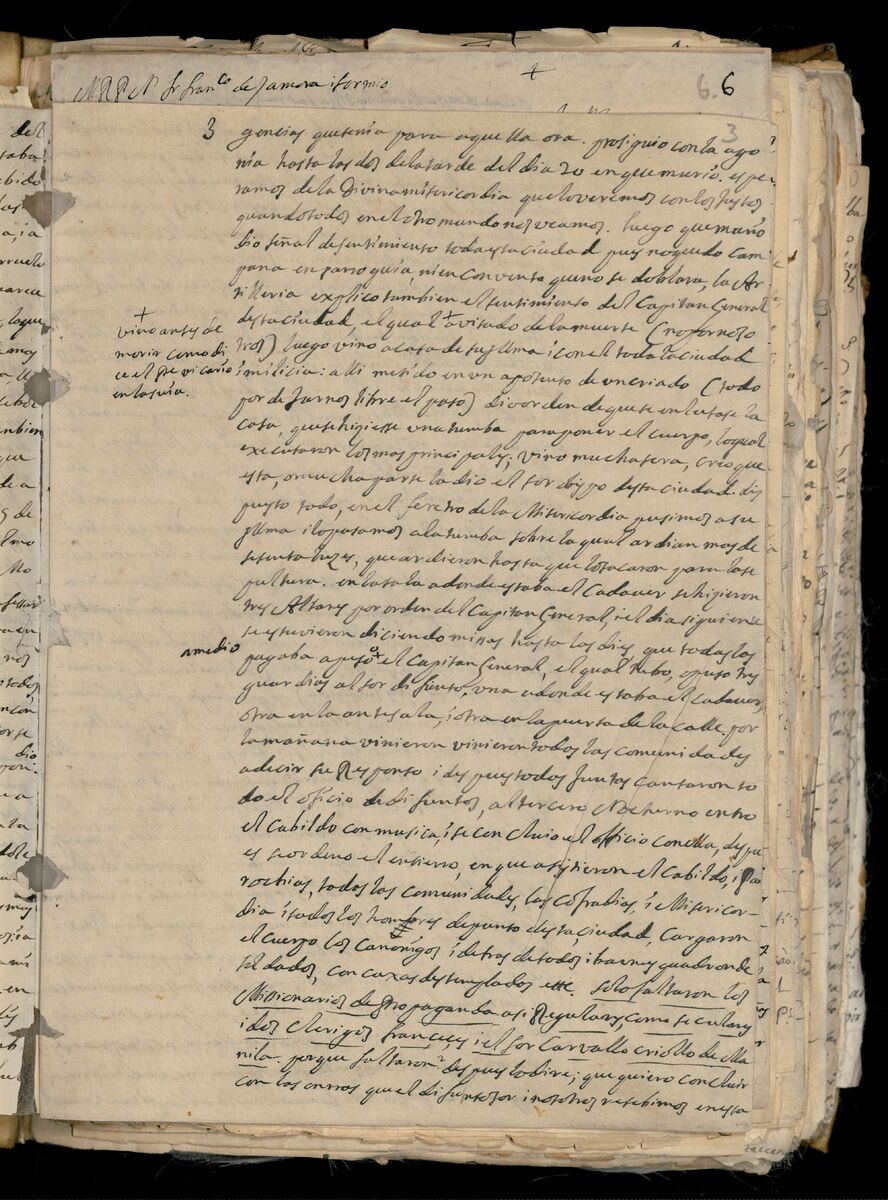 MRPN fr franco de Zamora i formio
+
6. 6
3
3 gencias que tenia para aquella ora. prosiguio con la ago
nia hasta las dos de la tarde del dia 20 en que murio. espe
ramos de la Divina misericordia que lo veremos con los justos
quando todos en el otro mundo nos veamos. luego que murio
dio señal de sentimiento toda esta ciudad pues no quedo cam
pana en parroquia, ni en convento que no se doblara, la Ar
tilleria explico tambien el sentimiento del Capitan General
desta ciudad, el qual + avisado de la muerte (no por noso
tros) luego vino a casa de su Illma i con el toda la ciudad
i milicia: alli metido en un aposento de un criado (todo
por dejarnos libre el paso) dio orden de que se enlutase la
casa, que se higiesse una tumba para poner el cuerpo, lo qual
executaron los mas principales; vino mucha sera, creo que
esta, o mucha parte la dio el sor obispo desta ciudad. dis
puesto todo, en el feretro de la Misericordia pusimos a su
Illma i lo pasamos a la tumba sobre la qual ardian mas de
sesenta luzes, que ardieron hasta que lo sacaron para la se
pultura. en la sala adonde estaba el Cadaver se higieron
tres Altares por orden del Capitan General, i el dia siguiente
se estuvieron diciendo misas hasta las dies, que todas las
pagaba a peso el Capitan General, el qual puso tres
guardias al sor difunto, una adonde estaba el cadaver,
otra en la antesala, i otra en la puerta de la calle. por
la mañana vinieron vinieron todas las comunidades
a decir su Responso i des pues todos juntos cantaron to
do el oficio de difuntos, al tercero Nocturno entro
el Cabildo con musica, i se con cluio el officio con ella, despu
es se ordeno el entierro, en que asistieron el Cabildo, i Pa
rochias, todas las comunidades, las cofradias, i Misericor-
dia i todos los hombres de punto desta ciudad, Cargaron
el cuerpo los Canonigos i detras de todos iban esquadron de
soldados, con caxas destempladas etc. solo faltaron los
Missionarios de Propaganda asi Regulares, como seculares
i dos clerigos franceses i el sor Carvallo criollo de Ma
nila. porque faltaron? despues lo dire; que quiero concluir
con las onrras que el difunto sor i nosotros resebimos en esta
+
vino antes de
morir como di
ce el Pe vicario
en la suia.
a medio